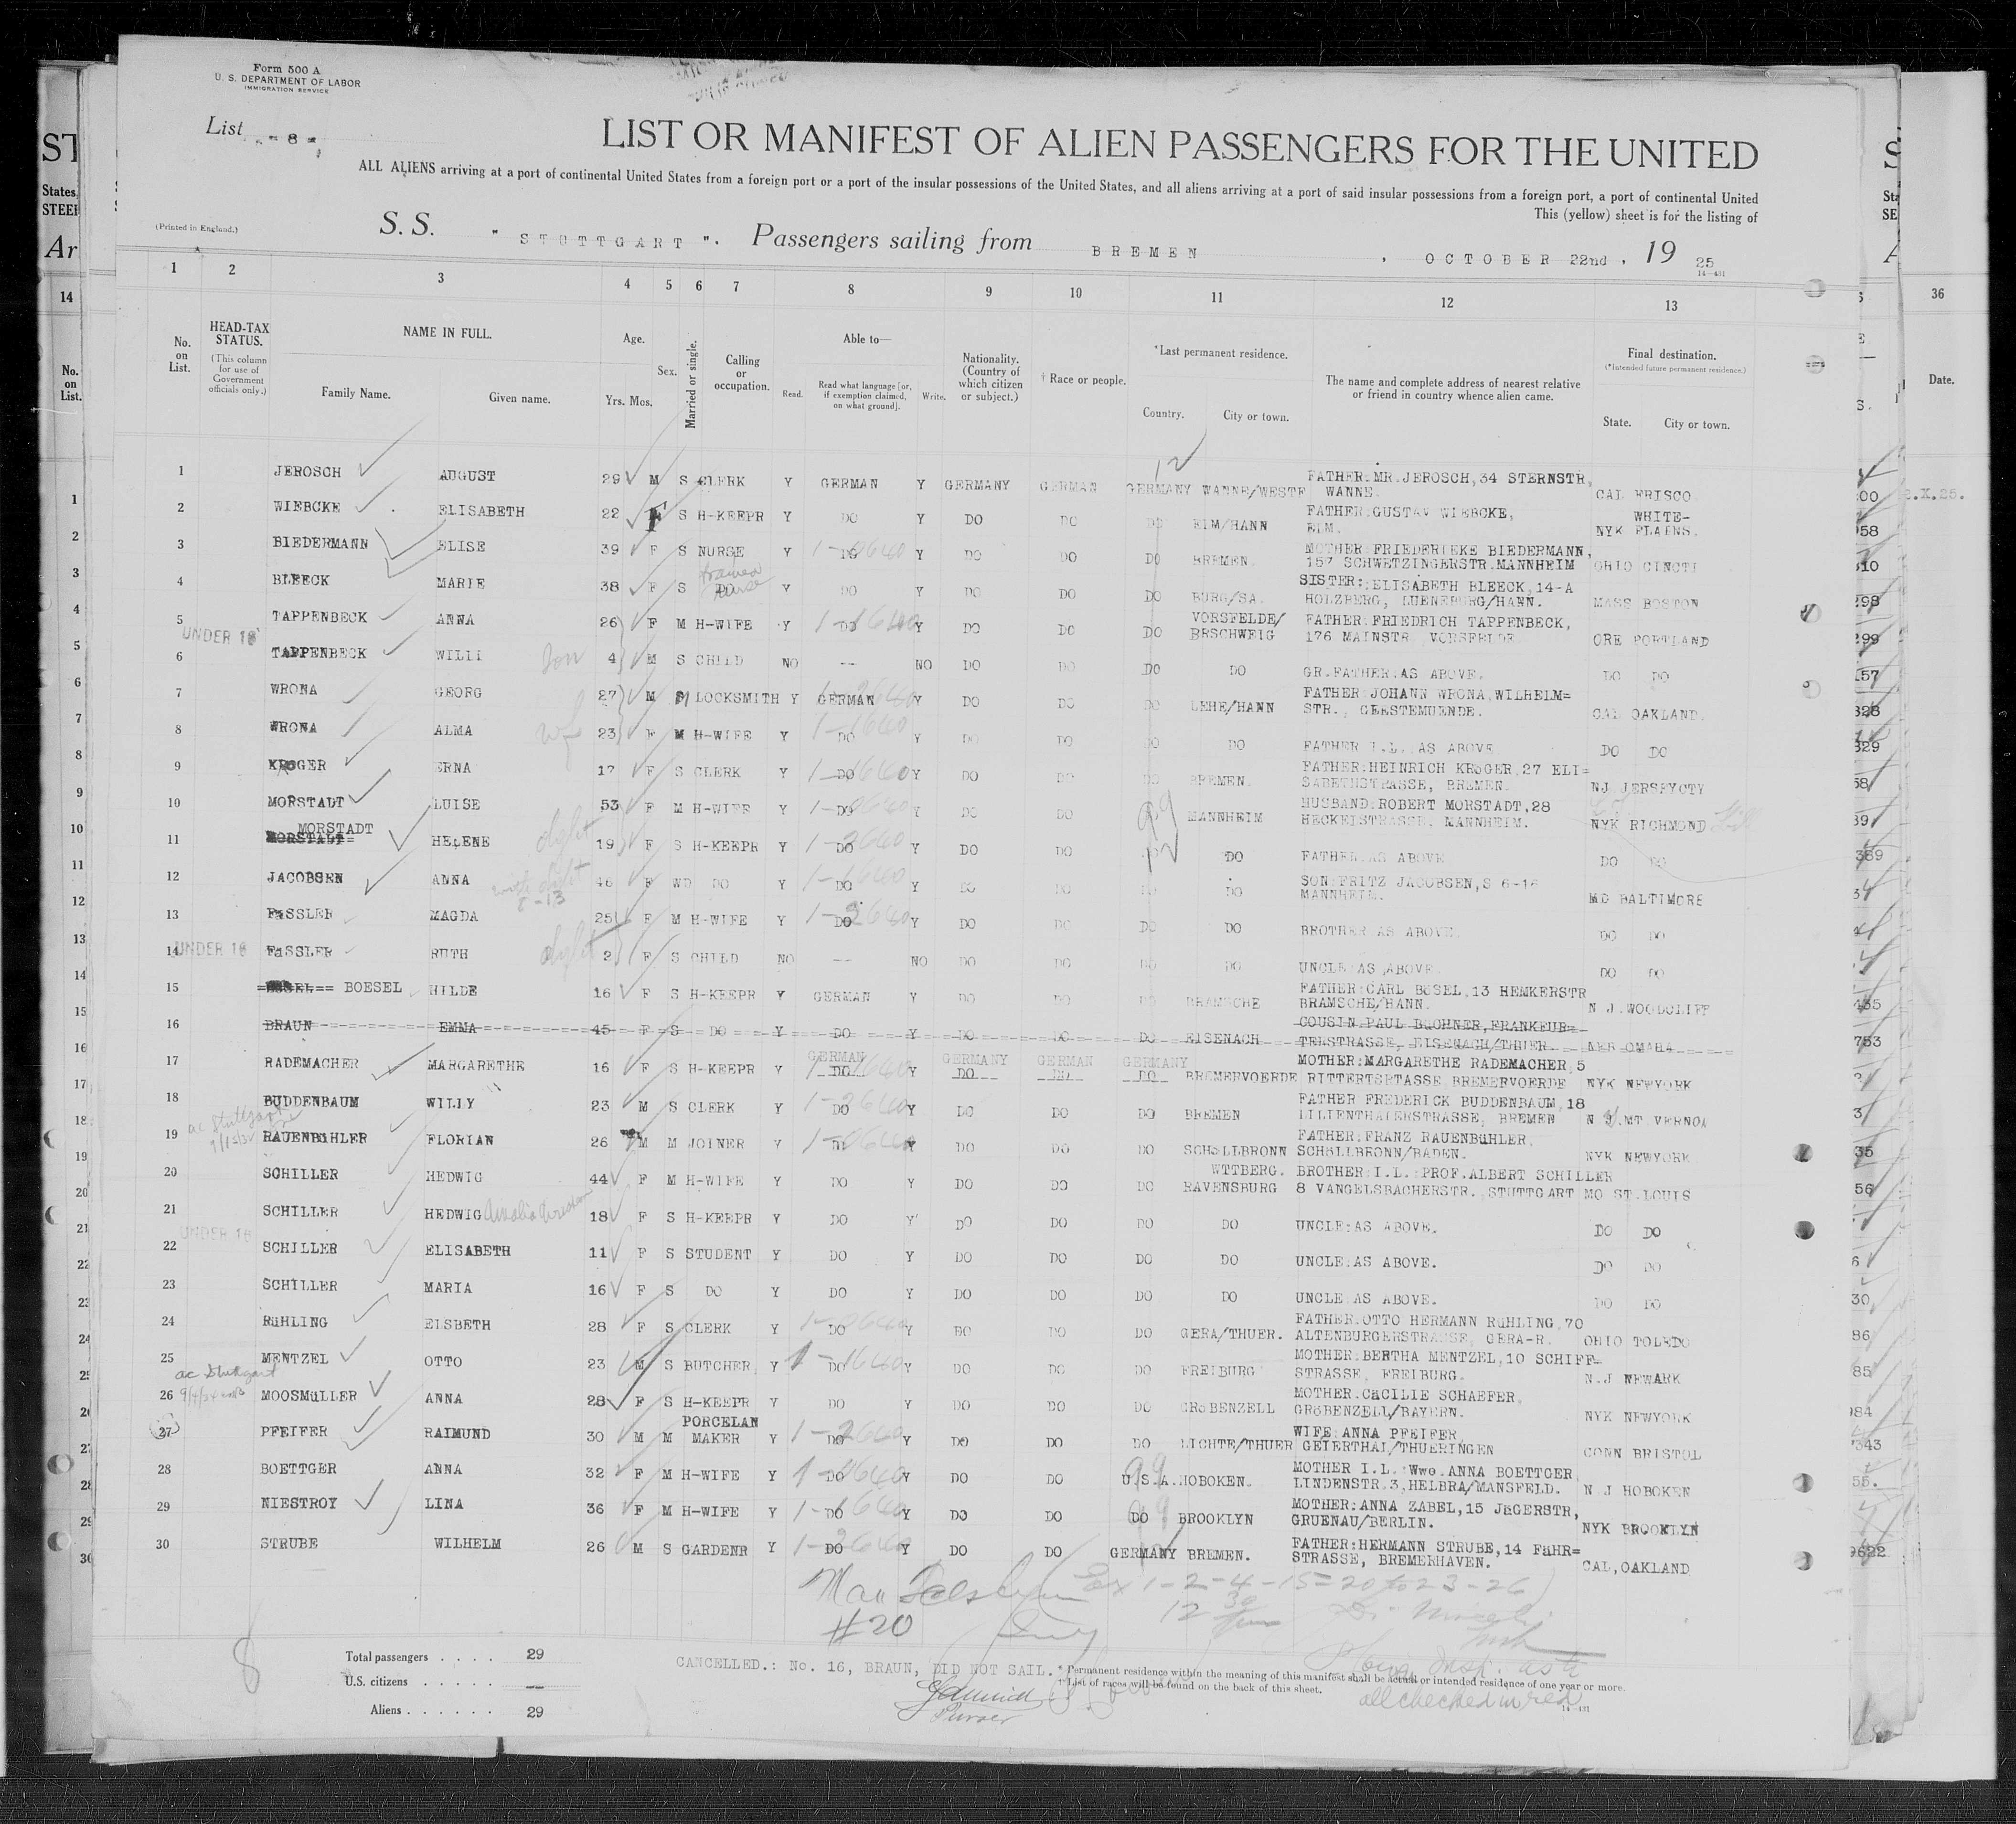 Form 500 A
U. S. DEPARTMENT OF LABOR
IMMIGRATION SERVICE
List - 8 -
LIST OR MANIFEST OF ALIEN PASSENGERS FOR THE UNITED
ALL ALIENS arriving at a port of continental United States from a foreign port or a port of the insular possessions of the United States, and all aliens arriving at a port of said insular possessions from a foreign port, a port of continental United
This (yellow) sheet is for the listing of
(Printed in England.)
S. S. " STUTTGART ". Passengers sailing from BREMEN , OCTOBER 22nd , 19 25
1 2 3 4 5 6 7 8 9 10 11 12 13
No. on List.
HEAD-TAX STATUS.
(This column for use of Government officials only.)
NAME IN FULL.
Family Name. Given name.
Age.
Yrs. Mos.
Sex.
Married or single.
Calling or occupation.
Able to—
Read. Read what language [or, if exemption claimed, on what ground]. Write.
Nationality. (Country of which citizen or subject.)
† Race or people.
*Last permanent residence.
Country. City or town.
The name and complete address of nearest relative or friend in country whence alien came.
Final destination.
(*Intended future permanent residence.)
State. City or town.
1 JEROSCH AUGUST 29 M S CLERK Y GERMAN Y GERMANY GERMAN GERMANY WANNE/WESTF FATHER:MR.JEROSCH,34 STERNSTR, WANNE. CAL FRISCO
2 WIEBCKE ELISABETH 22 F S H-KEEPR Y DO Y DO DO DO ELM/HANN FATHER:GUSTAV WIEBCKE, ELM. NYK WHITE-PLAINS.
3 BIEDERMANN ELISE 39 F S NURSE Y DO Y DO DO DO BREMEN. MOTHER:FRIEDERIEKE BIEDERMANN, 157 SCHWETZINGERSTR.MANNHEIM OHIO CINCTI
4 BLEECK MARIE 38 F S DO trained nurse Y DO Y DO DO DO BURG/SA. SISTER:ELISABETH BLEECK,14-A HOLZBERG, LUENEBURG/HANN. MASS BOSTON
5 TAPPENBECK ANNA 26 F M H-WIFE Y DO Y DO DO DO VORSFELDE/BRSCHWEIG FATHER:FRIEDRICH TAPPENBECK, 176 MAINSTR. VORSFELDE ORE PORTLAND
UNDER 16
6 TAPPENBECK WILLI son 4 M S CHILD NO -- NO DO DO DO DO GR.FATHER:AS ABOVE. DO DO
7 WRONA GEORG 27 M M LOCKSMITH Y GERMAN Y DO DO DO LEHE/HANN FATHER:JOHANN WRONA,WILHELM=STR., GEESTEMUENDE. CAL OAKLAND.
8 WRONA ALMA wf 23 F M H-WIFE Y DO Y DO DO DO DO FATHER I.L. AS ABOVE DO DO
9 KRöGER ERNA 17 F S CLERK Y DO Y DO DO DO BREMEN. FATHER:HEINRICH KRöGER,27 ELI=SABETHSTRASSE, BREMEN. NJ JERSEYCTY
10 MORSTADT LUISE 53 F M H-WIFE Y DO Y DO DO MANNHEIM HUSBAND:ROBERT MORSTADT,28 HECKELSTRASSE. MANNHEIM. NYK RICHMOND
11 MORSTADT HELENE dght 19 F S H-KEEPR Y DO Y DO DO DO FATHER:AS ABOVE DO DO
12 JACOBSEN ANNA with dght 46 F WD DO Y DO Y DO DO DO DO SON:FRITZ JACOBSEN,S 6-16 MANNHEIM. MD BALTIMORE
13 FäSSLER MAGDA 25 F M H-WIFE Y DO Y DO DO DO DO BROTHER:AS ABOVE. DO DO
14 UNDER 16 FäSSLER RUTH dght 2 F S CHILD NO -- NO DO DO DO DO UNCLE:AS ABOVE DO DO
15 BOESEL HILDE 16 F S H-KEEPR Y GERMAN Y DO DO DO BRAMSCHE FATHER:CARL BöSEL,13 HEMKERSTR BRAMSCHE/HANN. N J.WOODCLIFF
16 BRAUN EMMA 45 F S DO Y DO Y DO DO DO EISENACH COUSIN PAUL BüCHNER,FRANKFUR=TERSTRASSE, EISENACH/THUER NEB OMAHA
17 RADEMACHER MARGARETHE 16 F S H-KEEPR Y GERMAN Y GERMANY GERMAN GERMANY BREMERVOERDE MOTHER:MARGARETHE RADEMACHER,5 RITTERTSRTASSE BREMERVOERDE NYK NEWYORK
18 BUDDENBAUM WILLY 23 M S CLERK Y DO Y DO DO DO BREMEN FATHER FREDERICK BUDDENBAUM,18 LILIENTHALERSTRASSE, BREMEN N Y.MT.VERNON
19 RAUENBüHLER FLORIAN 26 M M JOINER Y DO Y DO DO DO SCHöLLBRONN FATHER:FRANZ RAUENBüHLER, SCHöLLBRONN/BADEN. NYK NEWYORK
20 SCHILLER HEDWIG 44 F M H-WIFE Y DO Y DO DO DO WTTBERG. RAVENSBURG BROTHER:I.L.:PROF.ALBERT SCHILLER 8 VANGELSBACHERSTR. STUTTGART MO ST.LOUIS
21 SCHILLER HEDWIG 18 F S H-KEEPR Y DO Y DO DO DO DO UNCLE:AS ABOVE. DO DO
UNDER 16
22 SCHILLER ELISABETH 11 F S STUDENT Y DO Y DO DO DO DO UNCLE:AS ABOVE. DO DO
23 SCHILLER MARIA 16 F S DO Y DO Y DO DO DO DO UNCLE:AS ABOVE. DO DO
24 RüHLING ELSBETH 28 F S CLERK Y DO Y DO DO DO GERA/THUER. FATHER:OTTO HERMANN RüHLING,70 ALTENBURGERSTRASSE, GERA-R. OHIO TOLEDO
25 MENTZEL OTTO 23 M S BUTCHER Y DO Y DO DO DO FREIBURG MOTHER:BERTHA MENTZEL,10 SCHIFF=STRASSE, FREIBURG. N.J NEWARK
26 MOOSMüLLER ANNA 28 F S H-KEEPR Y DO Y DO DO DO GRöBENZELL MOTHER:CäCILIE SCHAEFER, GRöBENZELL/BAYERN. NYK NEWYORK
27 PFEIFER RAIMUND 30 M M PORCELAN MAKER Y DO Y DO DO DO LICHTE/THUER WIFE:ANNA PFEIFER, GEIERTHAL/THUERINGEN CONN BRISTOL
28 BOETTGER ANNA 32 F M H-WIFE Y DO Y DO DO U.S.A.HOBOKEN. MOTHER I.L.:Wwe.ANNA BOETTGER, LINDENSTR.3,HELBRA/MANSFELD. N J HOBOKEN
29 NIESTROY LINA 36 F M H-WIFE Y DO Y DO DO DO BROOKLYN MOTHER:ANNA ZABEL,15 JäGERSTR, GRUENAU/BERLIN. NYK BROOKLYN
30 STRUBE WILHELM 26 M S GARDENR Y DO Y DO DO GERMANY BREMEN. FATHER:HERMANN STRUBE,14 FäHR=STRASSE, BREMERHAVEN. CAL,OAKLAND
Ex 1-2-4-15=20 to 23-26
#20
8
Total passengers . . . . 29
U.S. citizens . . . . . —
Aliens . . . . . . 29
CANCELLED.: No. 16, BRAUN, DID NOT SAIL.
Purser
* Permanent residence within the meaning of this manifest shall be actual or intended residence of one year or more.
† List of races will be found on the back of this sheet.
all checked in red
14—431